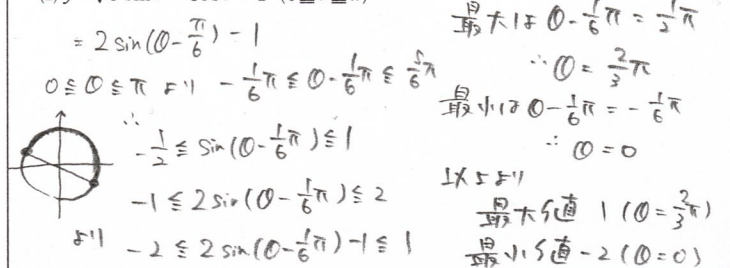 = 2 sin(θ - π/6) - 1
0 ≦ θ ≦ π より - 1/6 π ≦ θ - 1/6 π ≦ 5/6 π
∴
- 1/2 ≦ sin(θ - 1/6 π) ≦ 1
-1 ≦ 2 sin(θ - 1/6 π) ≦ 2
より -2 ≦ 2 sin(θ - 1/6 π) - 1 ≦ 1
最大は θ - 1/6 π = 1/2 π
∴ θ = 2/3 π
最小は θ - 1/6 π = - 1/6 π
∴ θ = 0
以上より
最大値 1 (θ = 2/3 π)
最小値 -2 (θ = 0)